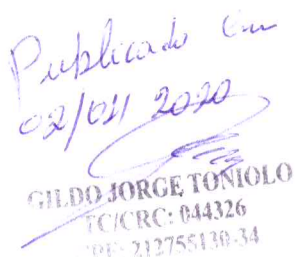 Publicado em
02/04/2020
GILDO JORGE TONIOLO
TC/CRC: 044326
212755130-34